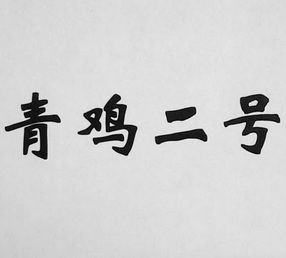 青鸡二号